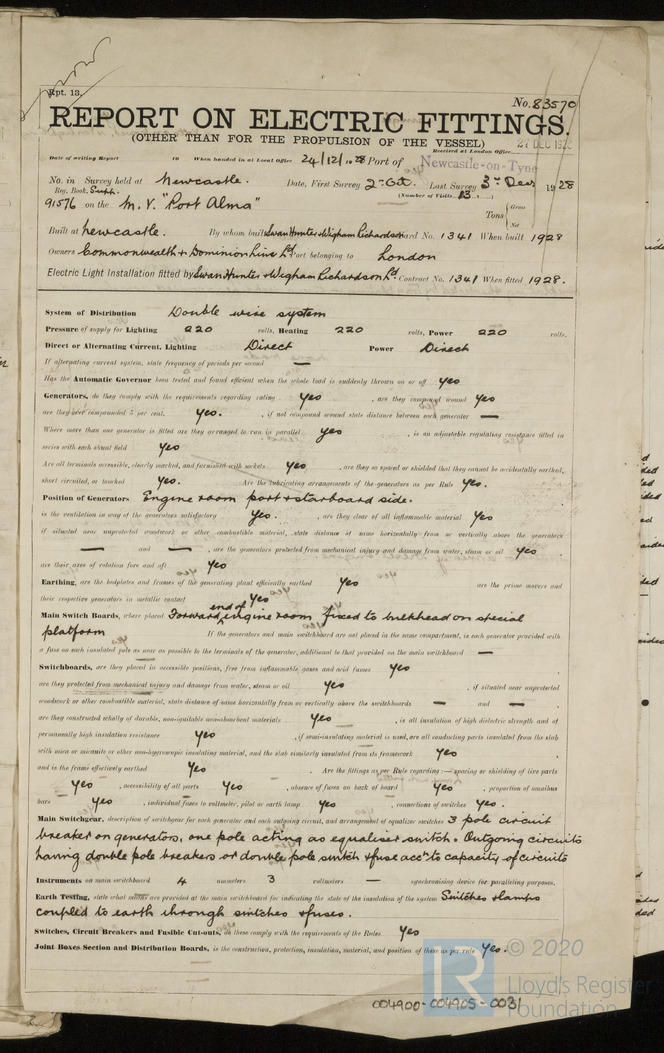 Rpt. 13.
No. 83570
REPORT ON ELECTRIC FITTINGS.
(OTHER THAN FOR THE PROPULSION OF THE VESSEL)
Received at London Office 27 DEC 192
Date of writing Report 19 When handed in at Local Office 24/12/1928 Port of Newcastle-on-Tyne
No. in Survey held at Newcastle. Date, First Survey 2nd Oct. Last Survey 3rd Dec 1928
Reg. Book. Supp. (Number of Visits 13)
91576 on the M.V. "Port Alma" Tons Gross Net
Built at Newcastle. By whom built Swan Hunter & Wigham Richardson Yard No. 1341 When built 1928
Owners Commonwealth & Dominion Line Ld Port belonging to London
Electric Light Installation fitted by Swan Hunter & Wigham Richardson Ld. Contract No. 1341 When fitted 1928.
System of Distribution Double wire system
Pressure of supply for Lighting 220 volts, Heating 220 volts, Power 220 volts.
Direct or Alternating Current, Lighting Direct Power Direct
If alternating current system, state frequency of periods per second —
Has the Automatic Governor been tested and found efficient when the whole load is suddenly thrown on or off yes
Generators, do they comply with the requirements regarding rating yes, are they compound wound yes
are they over compounded 5 per cent. yes., if not compound wound state distance between each generator —
Where more than one generator is fitted are they arranged to run in parallel yes, is an adjustable regulating resistance fitted in
series with each shunt field yes
Are all terminals accessible, clearly marked, and furnished with sockets yes, are they so spaced or shielded that they cannot be accidentally earthed,
short circuited, or touched yes. Are the lubricating arrangements of the generators as per Rule yes.
Position of Generators Engine room port & starboard side.
is the ventilation in way of the generators satisfactory yes., are they clear of all inflammable material yes
if situated near unprotected woodwork or other combustible material, state distance of same horizontally from or vertically above the generators
— and —, are the generators protected from mechanical injury and damage from water, steam or oil yes
are their axes of rotation fore and aft yes
Earthing, are the bedplates and frames of the generating plant efficiently earthed yes are the prime movers and
their respective generators in metallic contact yes
Main Switch Boards, where placed Forward end of engine room, fixed to bulkhead on special
platform If the generators and main switchboard are not placed in the same compartment, is each generator provided with
a fuse on each insulated pole as near as possible to the terminals of the generator, additional to that provided on the main switchboard —
Switchboards, are they placed in accessible positions, free from inflammable gases and acid fumes yes
are they protected from mechanical injury and damage from water, steam or oil yes, if situated near unprotected
woodwork or other combustible material, state distance of same horizontally from or vertically above the switchboards — and —,
are they constructed wholly of durable, non-ignitable non-absorbent materials yes, is all insulation of high dielectric strength and of
permanently high insulation resistance yes, if semi-insulating material is used, are all conducting parts insulated from the slab
with mica or micanite or other non-hygroscopic insulating material, and the slab similarly insulated from its framework yes
and is the frame effectively earthed yes. Are the fittings as per Rule regarding:— spacing or shielding of live parts
yes, accessibility of all parts yes, absence of fuses on back of board yes, proportion of omnibus
bars yes, individual fuses to voltmeter, pilot or earth lamp yes, connections of switches yes.
Main Switchgear, description of switchgear for each generator and each outgoing circuit, and arrangement of equalizer switches 3 pole circuit
breaker on generators, one pole acting as equaliser switch. Outgoing circuits
having double pole breakers or double pole switch & fuse accdg to capacity of circuits
Instruments on main switchboard 4 ammeters 3 voltmeters — synchronising device for paralleling purposes.
Earth Testing, state what means are provided at the main switchboard for indicating the state of the insulation of the system Switches & lamps
coupled to earth through switches & fuses.
Switches, Circuit Breakers and Fusible Cut-outs, do these comply with the requirements of the Rules yes
Joint Boxes Section and Distribution Boards, is the construction, protection, insulation, material, and position of these as per rule yes.
LR © 2020
Lloyd's Register
Foundation
004900-004905-0031